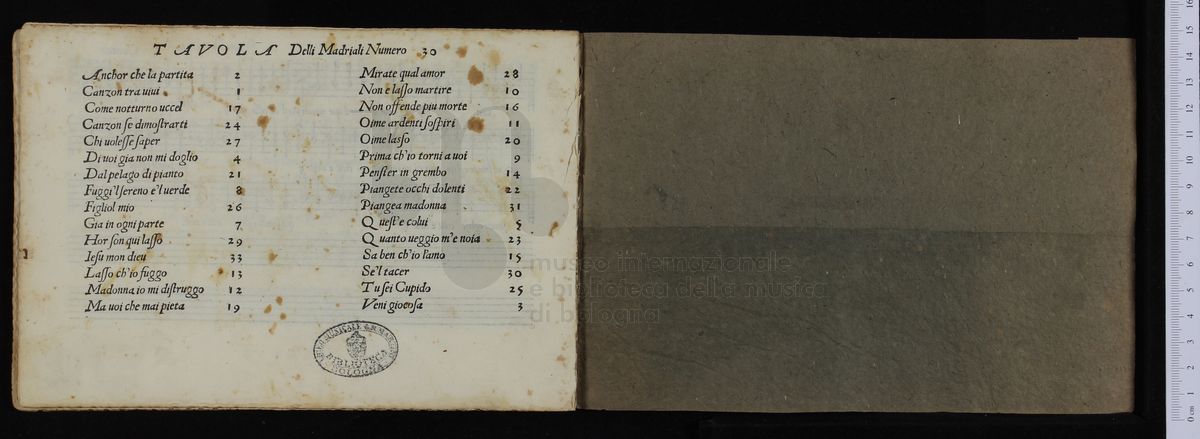 TAVOLA Delli Madriali Numero 30
Anchor che la partita 2
Canzon tra uiui 1
Come notturno uccel 17
Canzon se dimostrarti 24
Chi uolesse saper 27
Di uoi gia non mi doglio 4
Dal pelago di pianto 21
Fuggi'l sereno e'l uerde 8
Figliol mio 26
Gia in ogni parte 7
Hor son qui lasso 29
Iesu mon dieu 33
Lasso ch'io fuggo 13
Madonna io mi distruggo 12
Ma uoi che mai pieta 19
Mirate qual amor 28
Non e lasso martire 10
Non offende piu morte 16
Oime ardenti sospiri 11
Oime lasso 20
Prima ch'io torni a uoi 9
Pensier in grembo 14
Piangete occhi dolenti 22
Piangea madonna 31
Quest'e colui 5
Quanto ueggio m'e noia 23
Sa ben ch'io l'amo 15
Se'l tacer 30
Tu sei Cupido 25
Veni giocosa 3
BIBLIOTECA
BOLOGNA
museo internazionale
e biblioteca della musica
di bologna